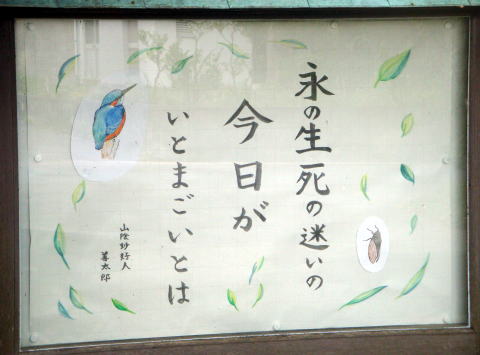 永の生死の迷いの
今日が
いとまごいとは
山陰妙好人
善太郎